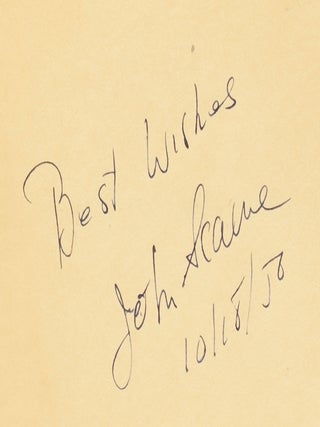 Best Wishes
John Scarne
10/18/58